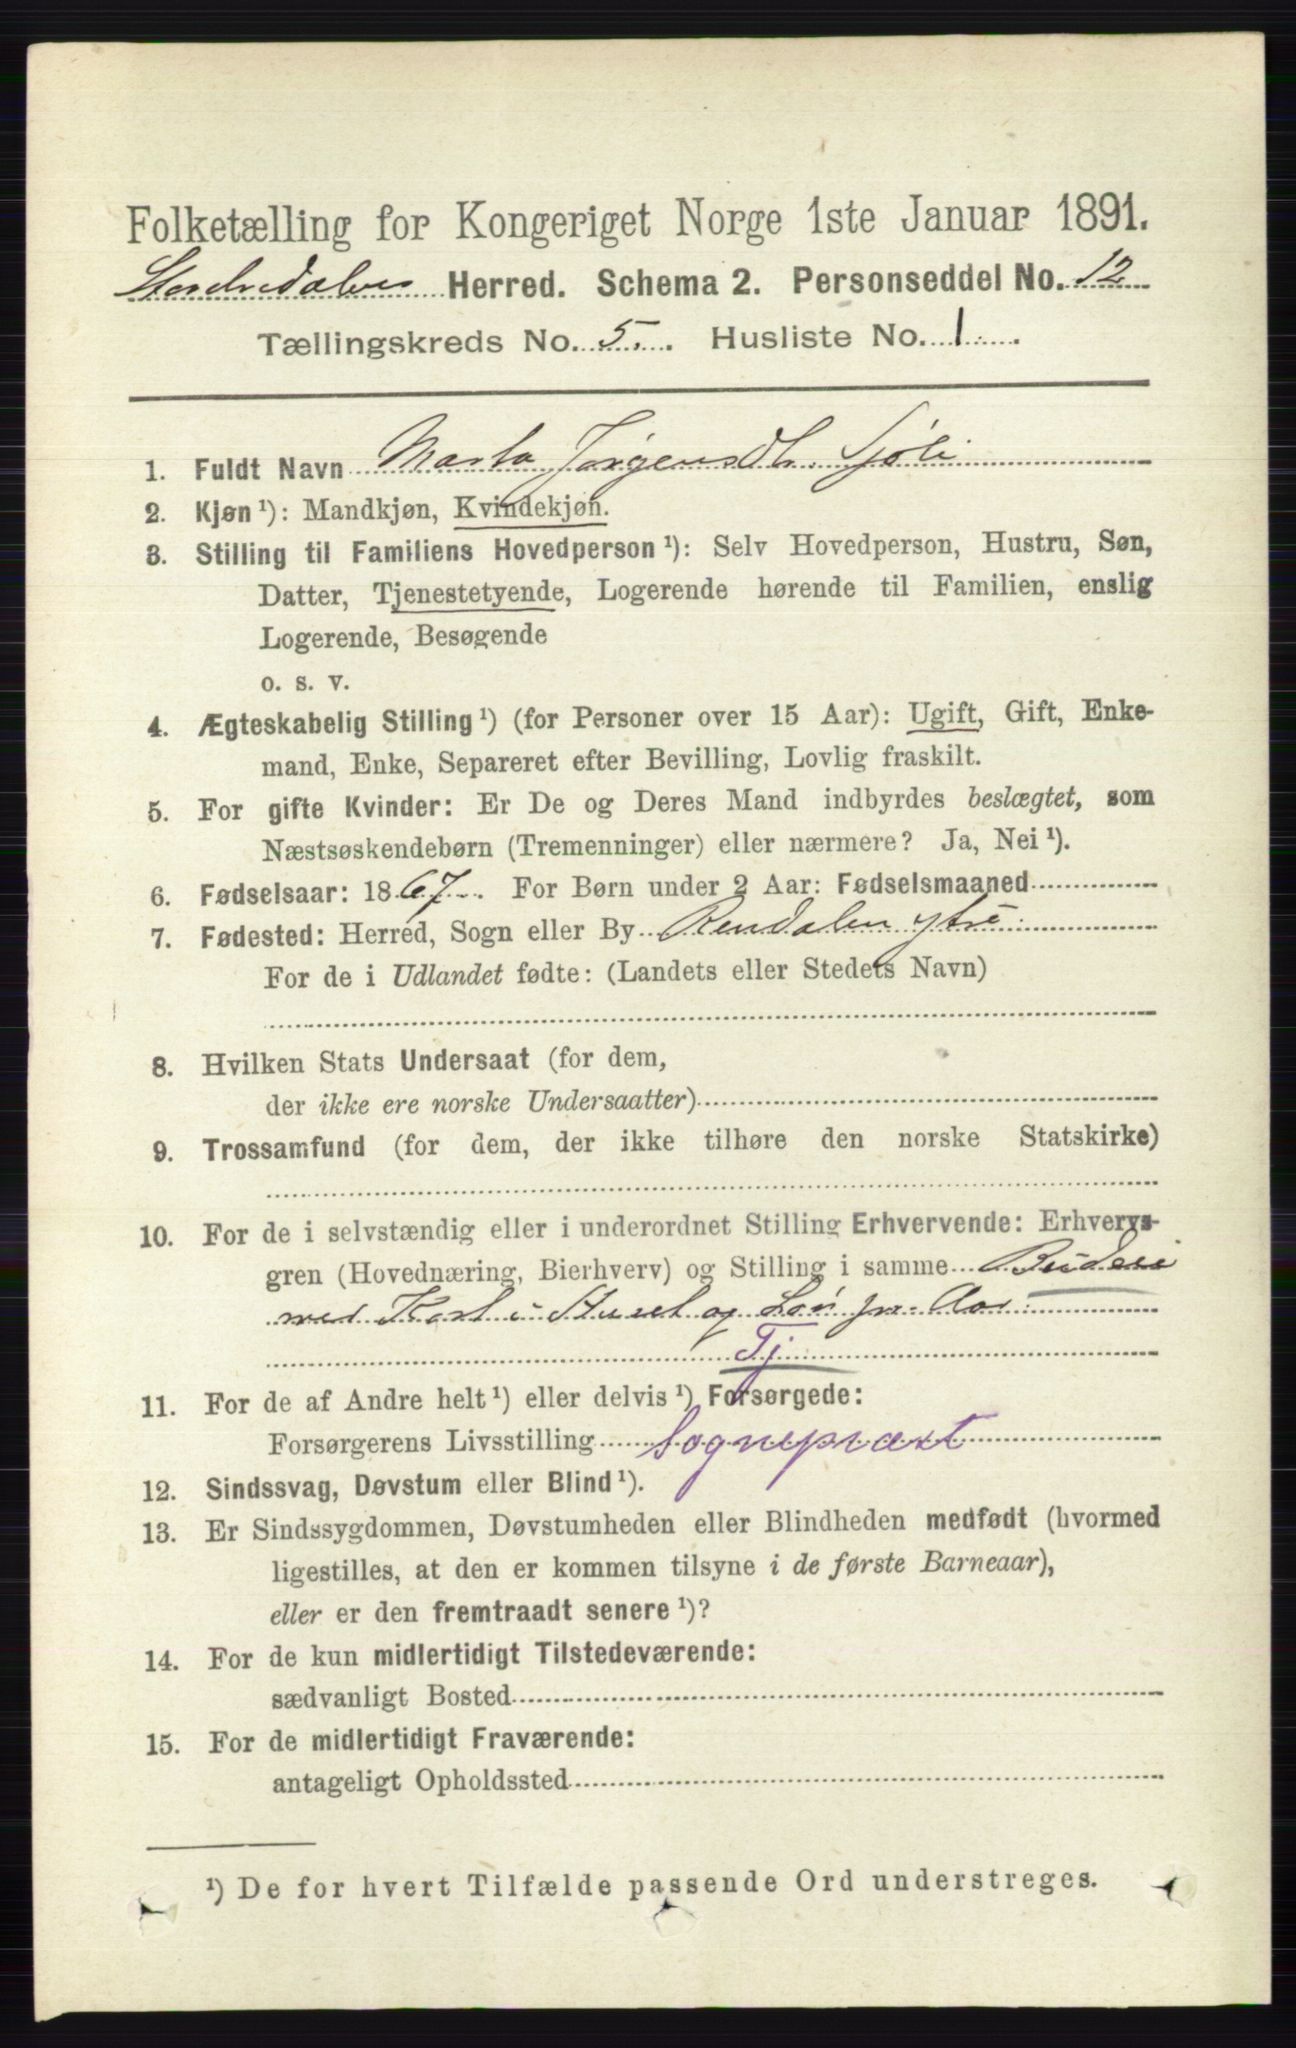 Folketælling for Kongeriget Norge 1ste Januar 1891.
Storelvedalens Herred. Schema 2. Personseddel No. 12
Tællingskreds No. 5. Husliste No. 1
1. Fuldt Navn Marta Jørgensdtr. Sjøli
2. Kjøn ¹): Mandkjøn, Kvindekjøn.
3. Stilling til Familiens Hovedperson ¹): Selv Hovedperson, Hustru, Søn,
Datter, Tjenestetyende, Logerende hørende til Familien, enslig
Logerende, Besøgende
o. s. v.
4. Ægteskabelig Stilling ¹) (for Personer over 15 Aar): Ugift, Gift, Enke-
mand, Enke, Separeret efter Bevilling, Lovlig fraskilt.
5. For gifte Kvinder: Er De og Deres Mand indbyrdes beslægtet, som
Næstsøskendebørn (Tremenninger) eller nærmere? Ja, Nei ¹).
6. Fødselsaar: 1867. For Børn under 2 Aar: Fødselsmaaned
7. Fødested: Herred, Sogn eller By Rendalen ytre
For de i Udlandet fødte: (Landets eller Stedets Navn)
8. Hvilken Stats Undersaat (for dem,
der ikke ere norske Undersaatter)
9. Trossamfund (for dem, der ikke tilhøre den norske Statskirke)
10. For de i selvstændig eller i underordnet Stilling Erhvervende: Erhvervs-
gren (Hovednæring, Bierhverv) og Stilling i samme Budeie
med Kost i Huset og Løn pr. Aar
Tj
11. For de af Andre helt ¹) eller delvis ¹) Forsørgede:
Forsørgerens Livsstilling Sognepræst
12. Sindssvag, Døvstum eller Blind ¹).
13. Er Sindssygdommen, Døvstumheden eller Blindheden medfødt (hvormed
ligestilles, at den er kommen tilsyne i de første Barneaar),
eller er den fremtraadt senere ¹)?
14. For de kun midlertidigt Tilstedeværende:
sædvanligt Bosted
15. For de midlertidigt Fraværende:
antageligt Opholdssted
¹) De for hvert Tilfælde passende Ord understreges.